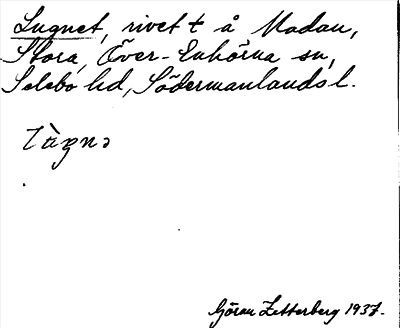 Lugnet, rivet t å Madan,
Stora, Över-Enhörna sn,
Selebo hd, Södermanlands l.
Göran Zetterberg 1937.